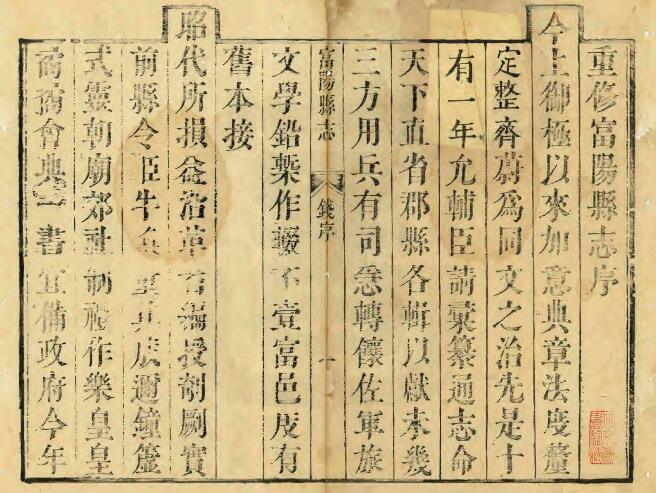 重修富陽縣志序
今上御極以來加意典章法度釐
定整齊蔚爲同文之治先是十
有一年允輔臣請彙纂通志命
天下直省郡縣各輯以獻未幾
三方用兵有司轉饟佐軍旅
富陽縣志
錢序
一
文學鉛槧作輟不壹富邑有
舊本接
昭代所損益沿革授剞劂實
前縣令臣牛其成邇鐘簴
式靈朝廟郊社制禮作樂皇皇
會典一書宜備政府今年